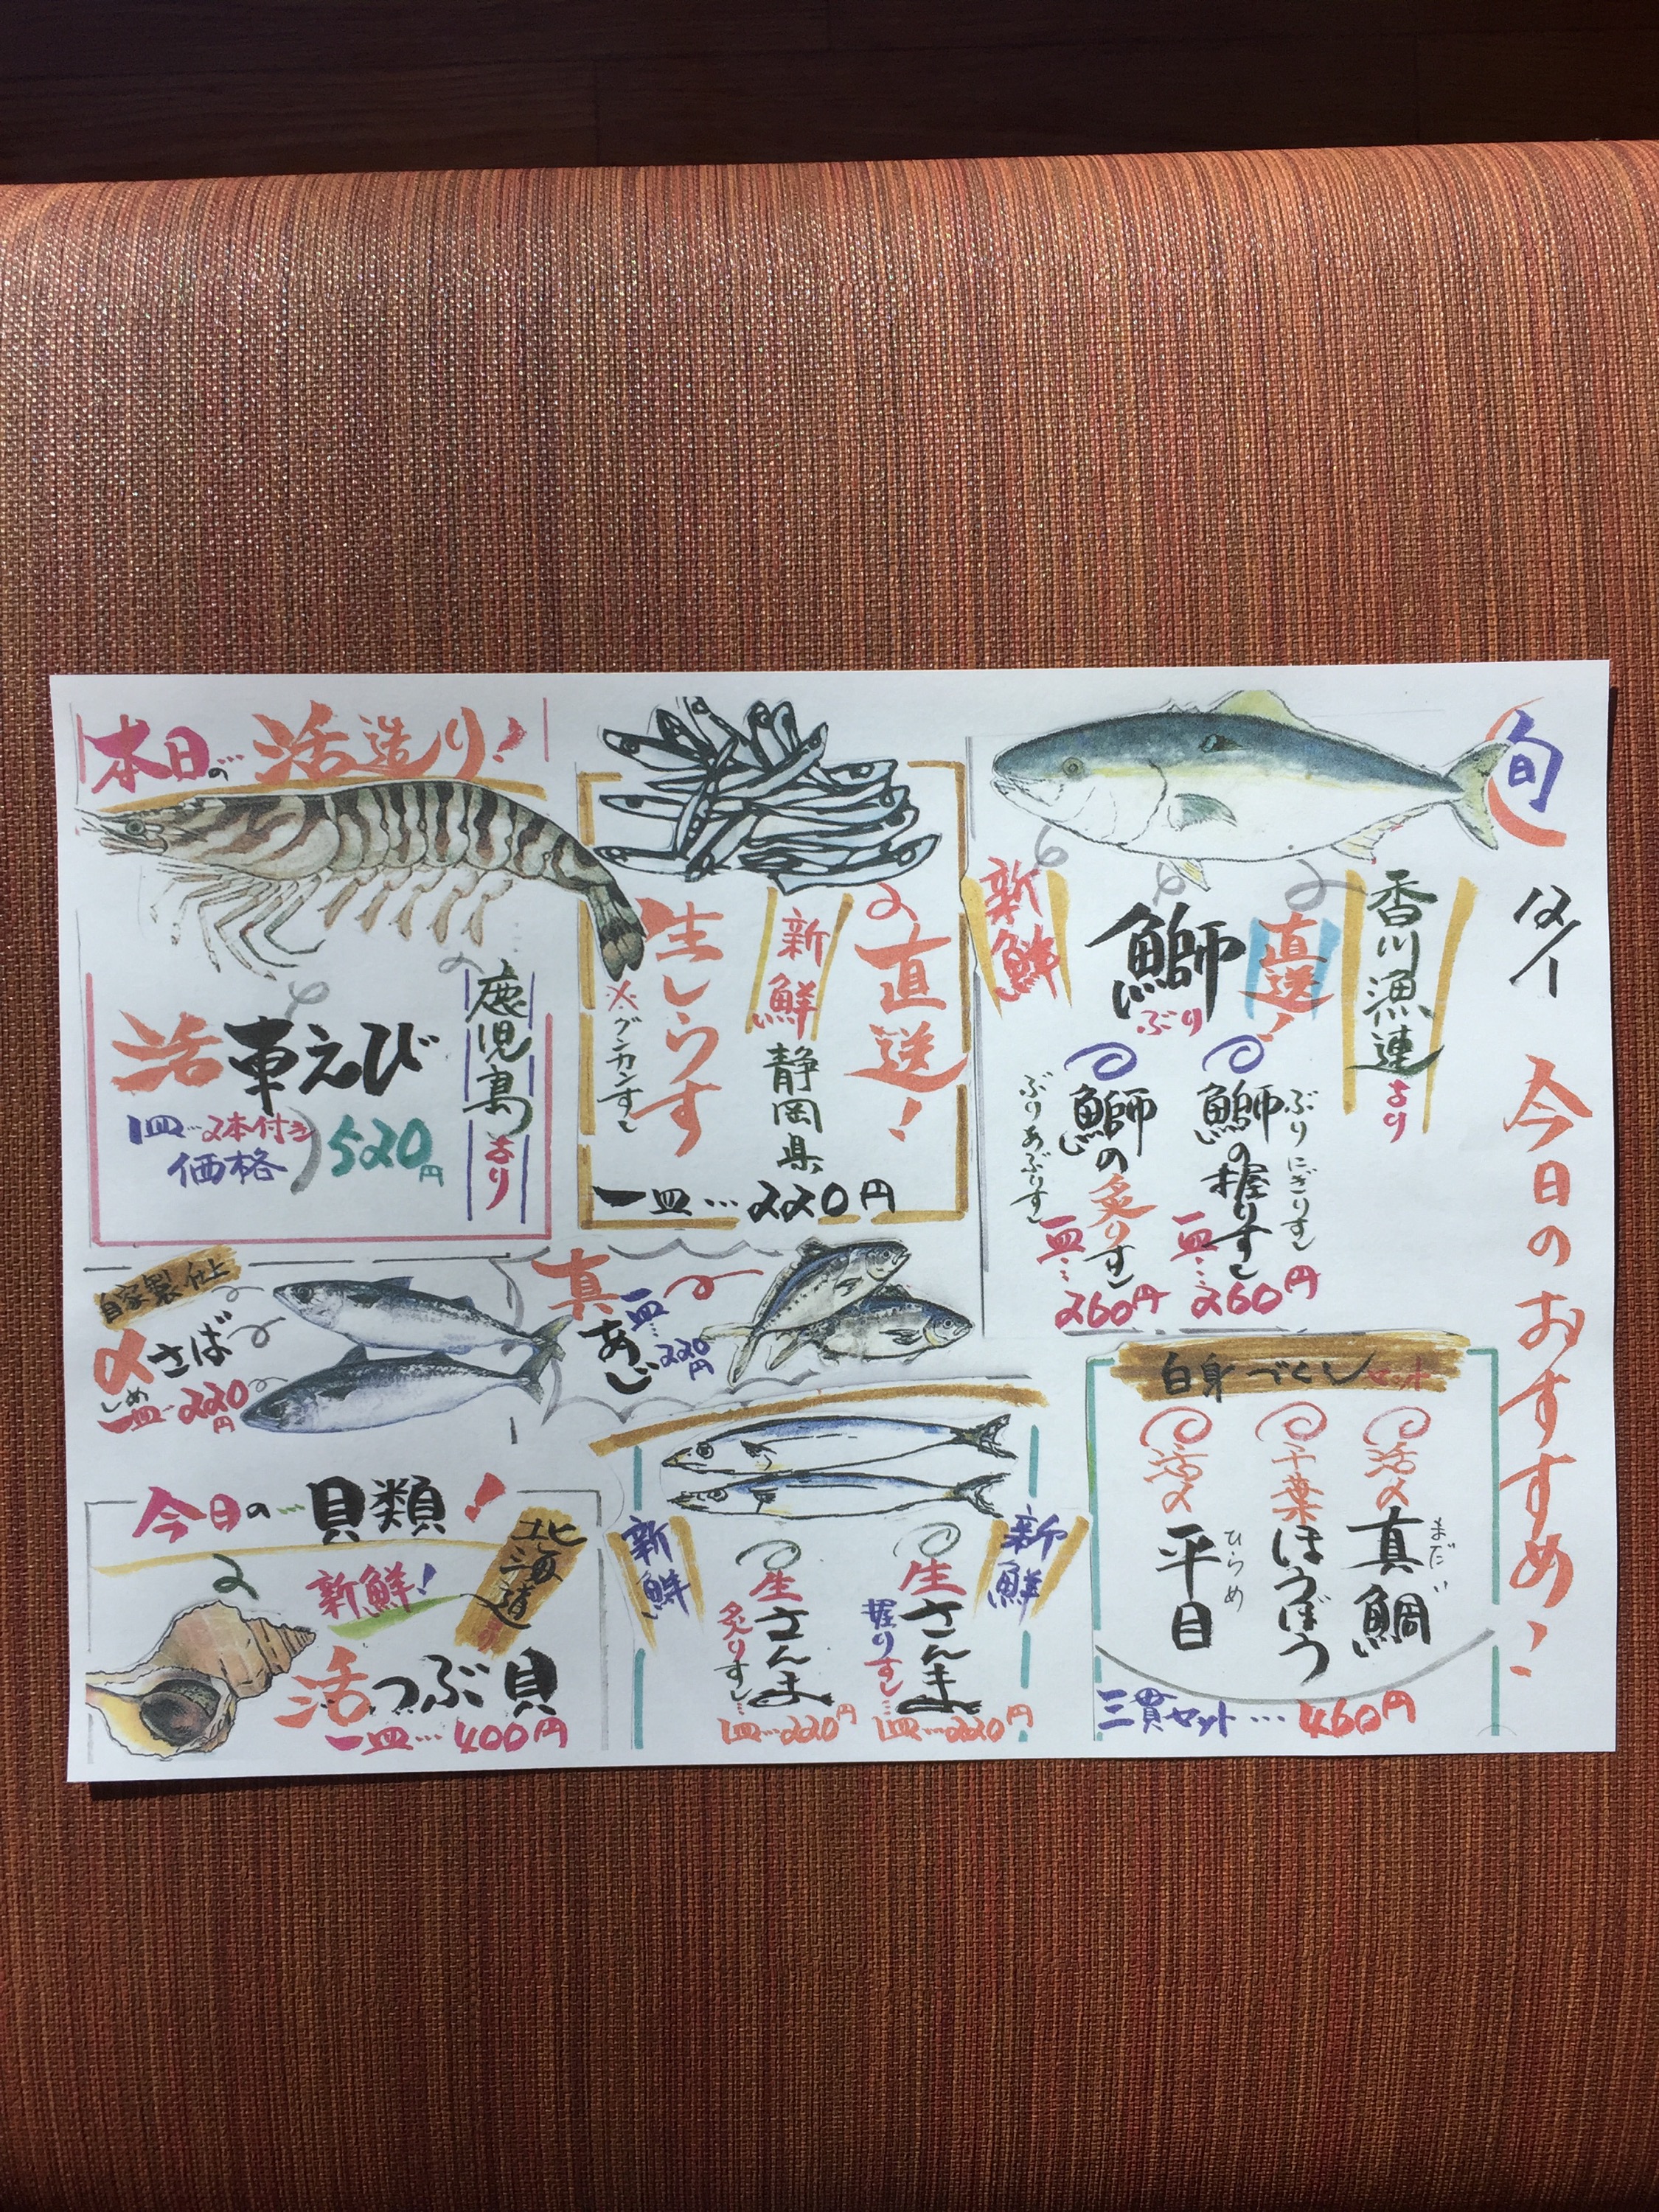 旬
今日のおすすめ!
香川漁連より
直送!
鰤
ぶり
新鮮
ぶりにぎりすし
鰤の握りすし
一皿…260円
鰤の炙りすし
ぶりあぶりすし
一皿…260円
直送!
新鮮
静岡県
生しらす
※グンカンすし
一皿…220円
本日の…活造り!
鹿児島より
活車えび
1皿…2本付き
価格
520円
自家製 仕上
〆さば
しめ
一皿…220円
真あじ
一皿…220円
白身づくしセット
活〆真鯛
まだい
千葉ほうぼう
活〆平目
ひらめ
三貫セット…460円
新鮮
生さんま
握りすし…
1皿…220円
生さんま
炙りすし…
1皿…220円
新鮮
今日の…貝類!
北海道
新鮮!
活つぶ貝
一皿…400円